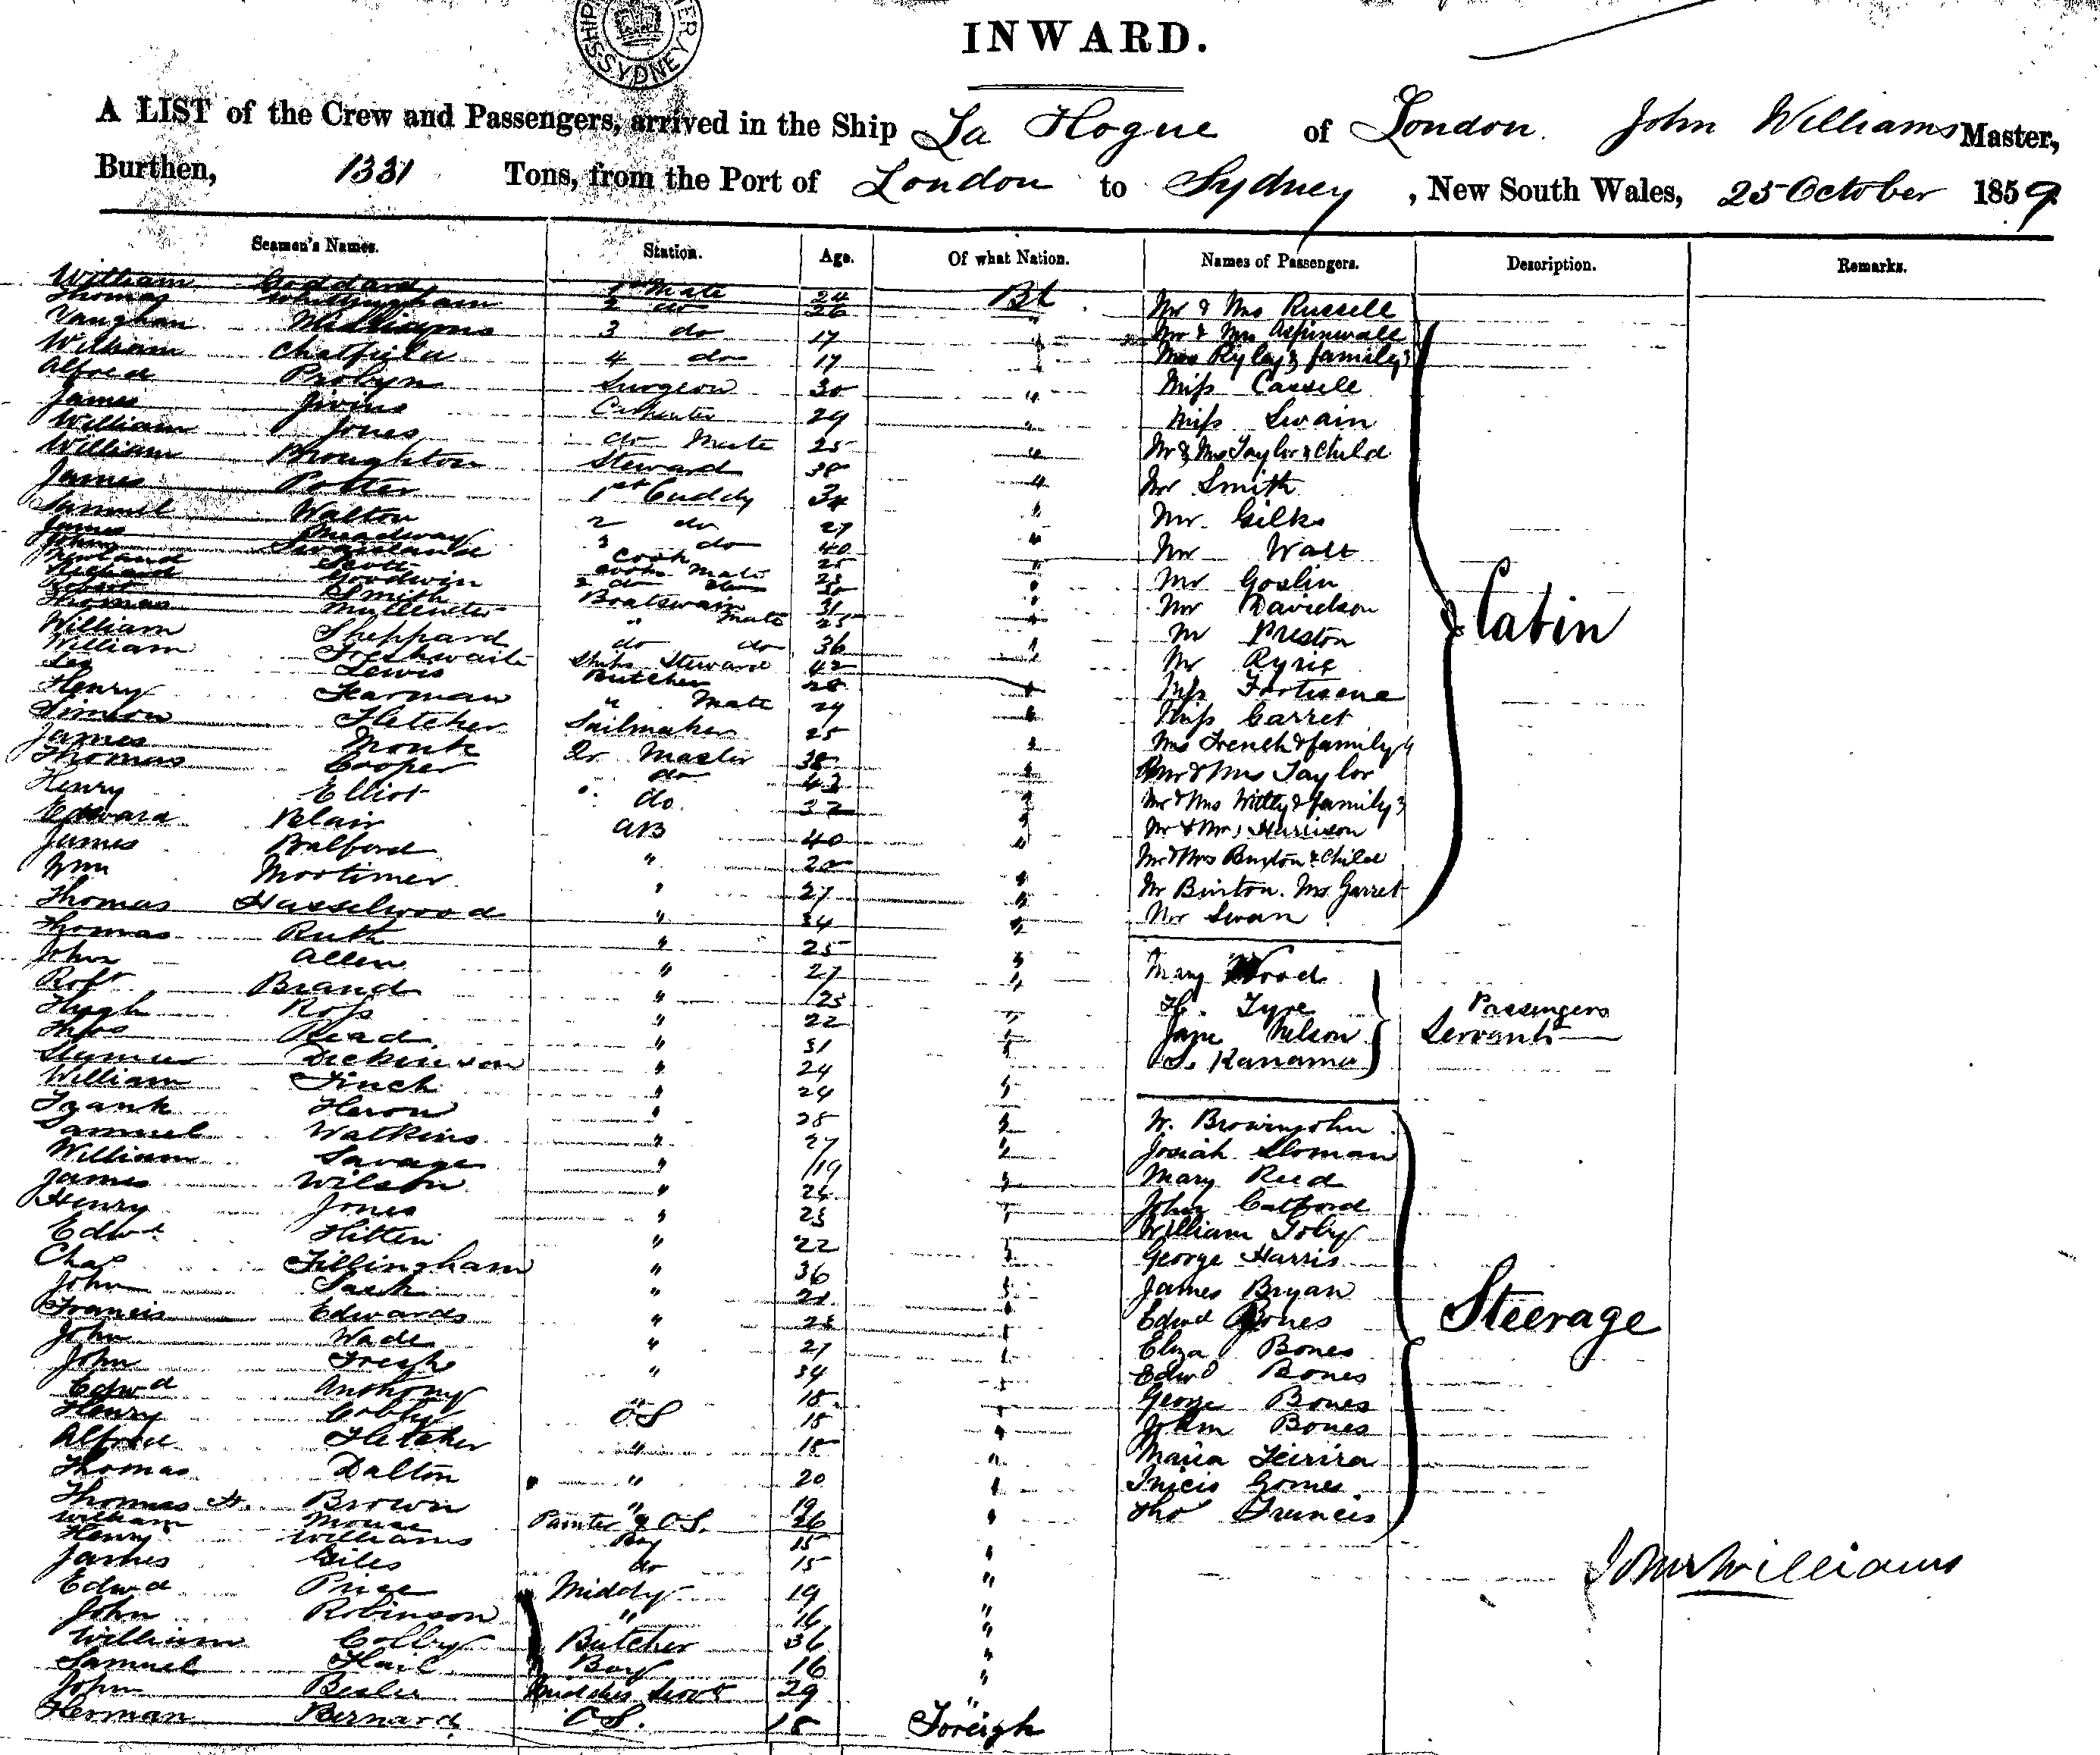 SYDNEY
INWARD.
A LIST of the Crew and Passengers, arrived in the Ship La Hogue of London. John Williams Master,
Burthen, 1331 Tons, from the Port of London to Sydney, New South Wales, 25 October 1859
Seamen's Names. Station. Age. Of what Nation. Names of Passengers. Description. Remarks.
William Goddard 1st Mate 24 Bt
Thomas Whittingham 2 do 26 "
Vaughan Williams 3 do 17 "
William Chatfield 4 do 17 "
Alfred Probyn Surgeon 30 "
James Jivins Carpenter 29 "
William Jones do Mate 25 "
William Broughton Steward 38 "
James Potter 1st Cuddy 34 "
Samuel Walton 2 do 27 "
James Meadway 3 do 40 "
John Swainland Cook 25 "
Scott Cooks Mate 23 "
Richard Goodwin 2 do do 30 "
Robert Smith Boatswain 31 "
Thomas Mulleneter " Mate 25 "
William Sheppard do do 36 "
William Freshwaite Ships Steward 42 "
Leo Lewis Butcher 28 "
Henry Fearman " Mate 29 "
Simeon Fletcher Sailmaker 25 "
James Monk Qr Master 38 "
Thomas Cooper do 43 "
Henry Elliot do. 32 "
Edward Blair AB 40 "
James Balford " 20 "
Wm Mortimer " 27 "
Thomas Hasselwood " 34 "
Thomas Ruth " 25 "
John Allen " 27 "
Robt Brand " 25 "
Hugh Ross " 22 "
Thos Read " 31 "
Dickinson " 24 "
William Finch " 24 "
Frank Heron " 28 "
Samuel Watkins " 27 "
William Savage " 19 "
James Wilson " 24 "
Henry Jones " 23 "
Edwd Hitten " 22 "
Chas Fillingham " 36 "
John Sach " 21 "
Francis Edwards " 23 "
John Wade " 27 "
John Fresh " 34 "
Edwd Anthony " 18 "
Henry OS 18 "
Alfred Fletcher " 18 "
Thomas Dalton " 20 "
Thomas H. Brown " 19 "
William Mouse Painter & OS. 26 "
Henry Williams Boy 15 "
James Giles do 15 "
Edwd Price Middy 19 "
John Robinson " 16 "
William Colby Butcher 36 "
Samuel Hail Boy 16 "
John Beslee Middies Servt 29 "
Herman Bernard OS. 18 Foreign
Mr & Mrs Russell
Mr & Mrs Aspinwall
Mrs Ryley & family 3
Miss Cassell
Miss Swain
Mr & Mrs Taylor & Child
Mr Smith
Mr. Gilks
Mr Watt
Mr Goslin
Mr Davidson
Mr Preston
Mr Ryrie
Miss
Miss Garret
Mrs French & family 4
Mr & Mrs Taylor
Mr & Mrs Witty & family 3
Mr & Mrs Harrison
Mr & Mrs Buxton & Child
Mr Binton. Mrs Garret
Mr Swan
Cabin
Mary Wood
H. Tyre
Jane Nelson
S. Kanama
Passengers
Servants
W. Browinjohn
Josiah Sloman
Mary Reed
John Catford
William Toby
George Harris
James Bryan
Edwd Bones
Eliza Bones
Edwd Bones
George Bones
John Bones
Maria Feirira
Inicis Gomes
Tho Francis
Steerage
John Williams